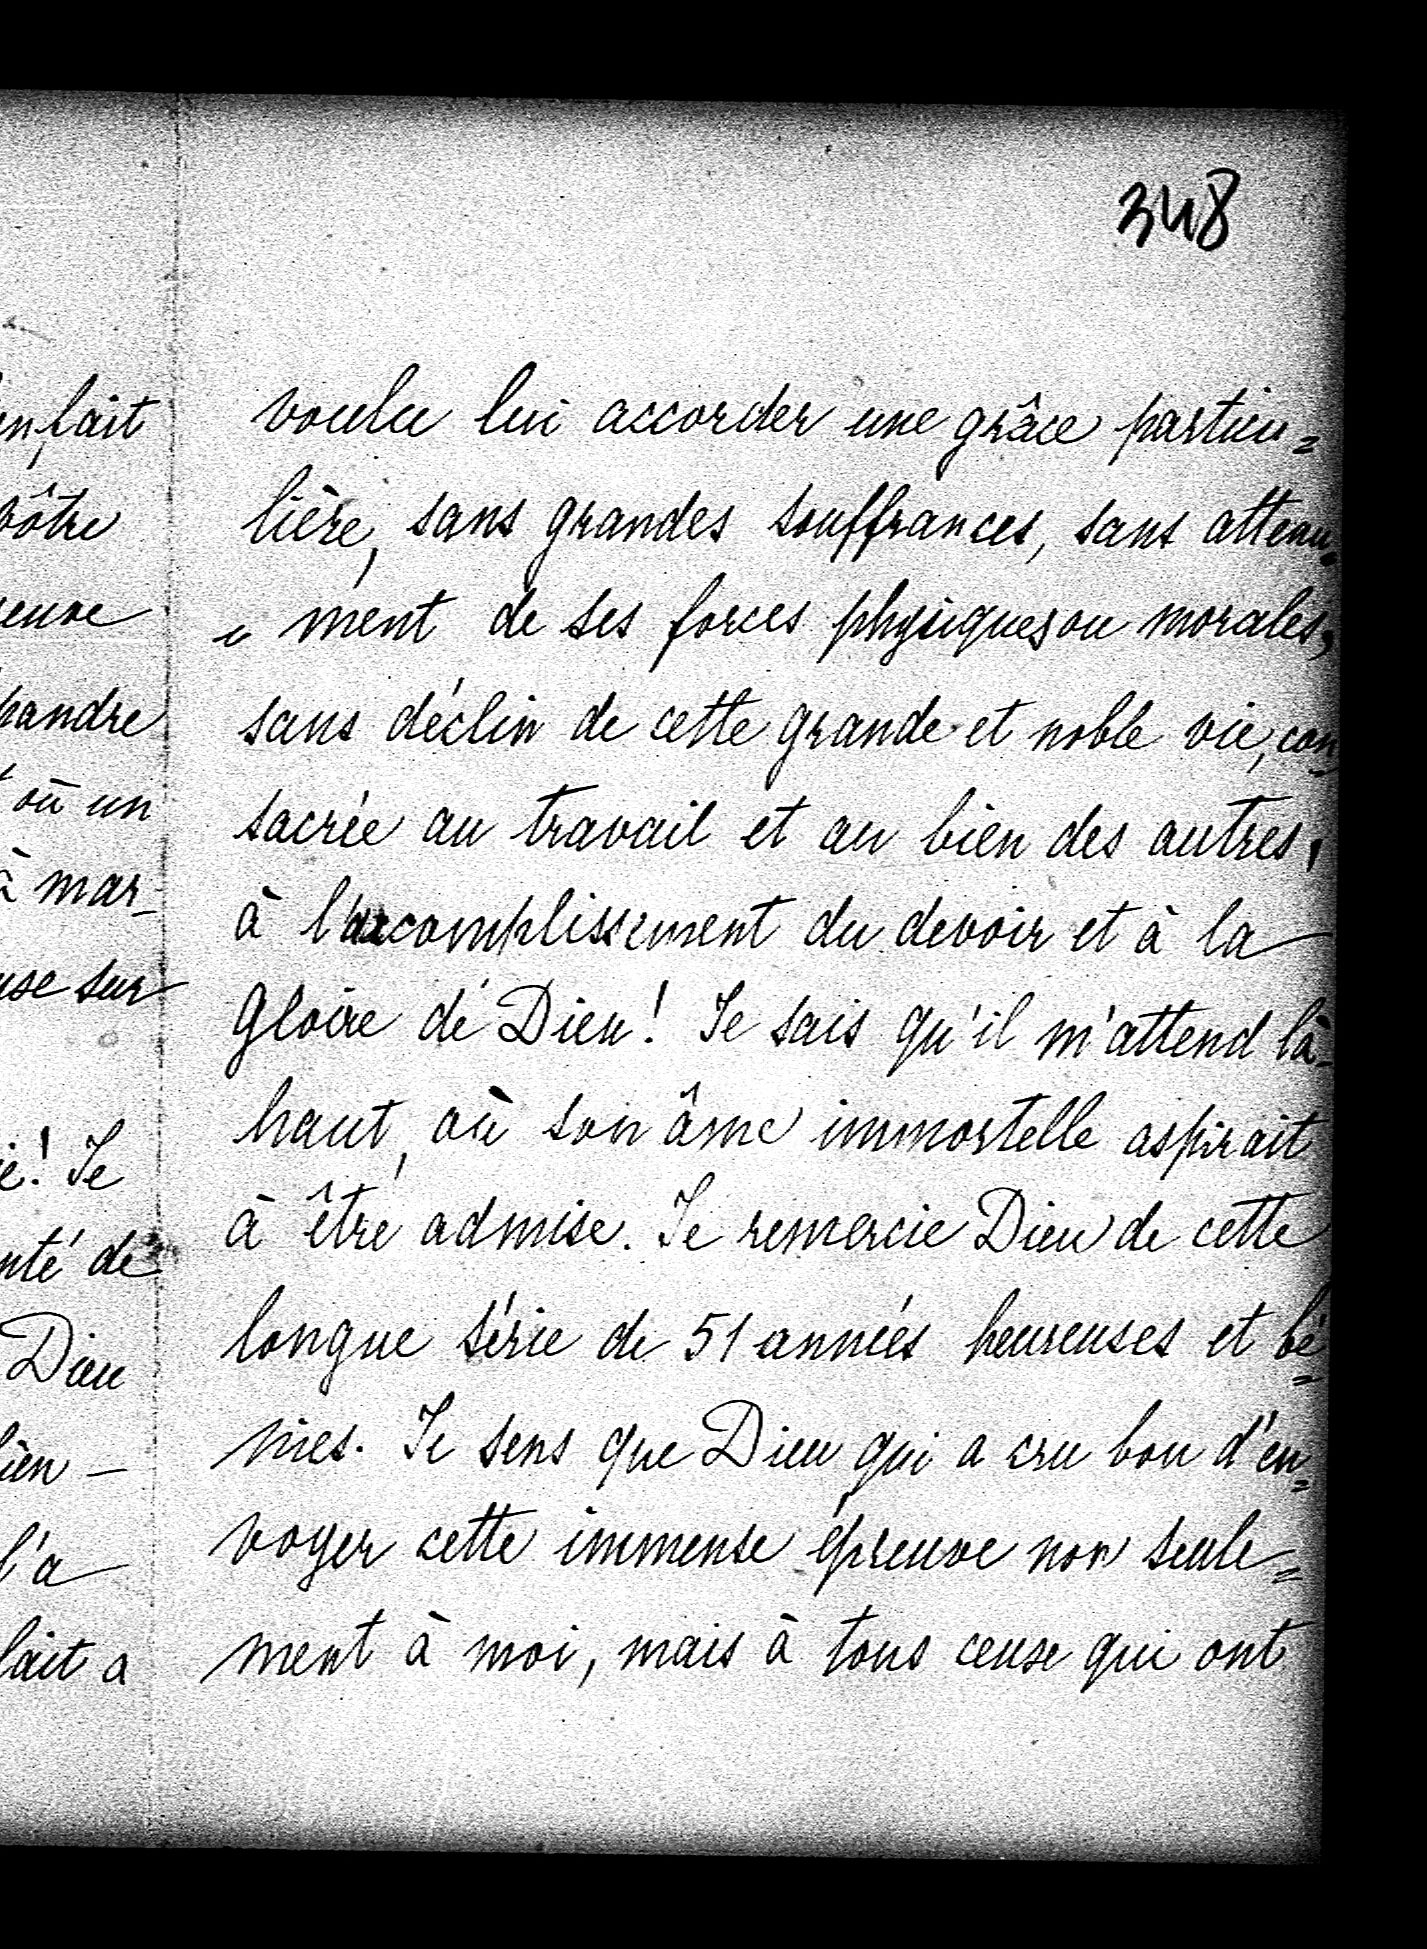 348
voulu lui accorder une grâce particu=
lière, sans grandes souffrances, sans attenu=
ment de ses forces physiques ou morales,
sans déclin de cette grande et noble vie, con
sacrée au travail et au bien des autres,
à l'accomplissement du devoir et à la
gloire de Dieu! Je sais qu'il m'attend là-
haut, où son âme immortelle aspirait
à être admise. Je remercie Dieu de cette
longue série de 51 années heureuses et bé=
nies. Je sens que Dieu qui a cru bon d'en=
voyer cette immense épreuve non seule=
ment à moi, mais à tous ceux qui ont
nfait
ôtre
euve
pandre
où un
à mar-
use sur
! Je
nté de
Dieu
ien –
l'a
lait a